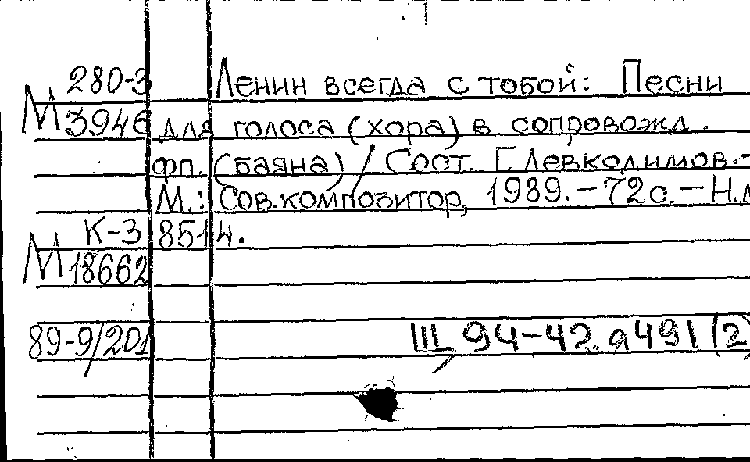 280-3 Ленин всегда с тобой: Песни
М 3946 для голоса (хора) в сопровожд.
фп. (баяна) / Сост. Г. Левкодимов.-
М.: Сов. композитор, 1989. - 72 с. - Н.л
К-3 8514.
М 18662
89-9/201 Ш 94-42. а491 (2)